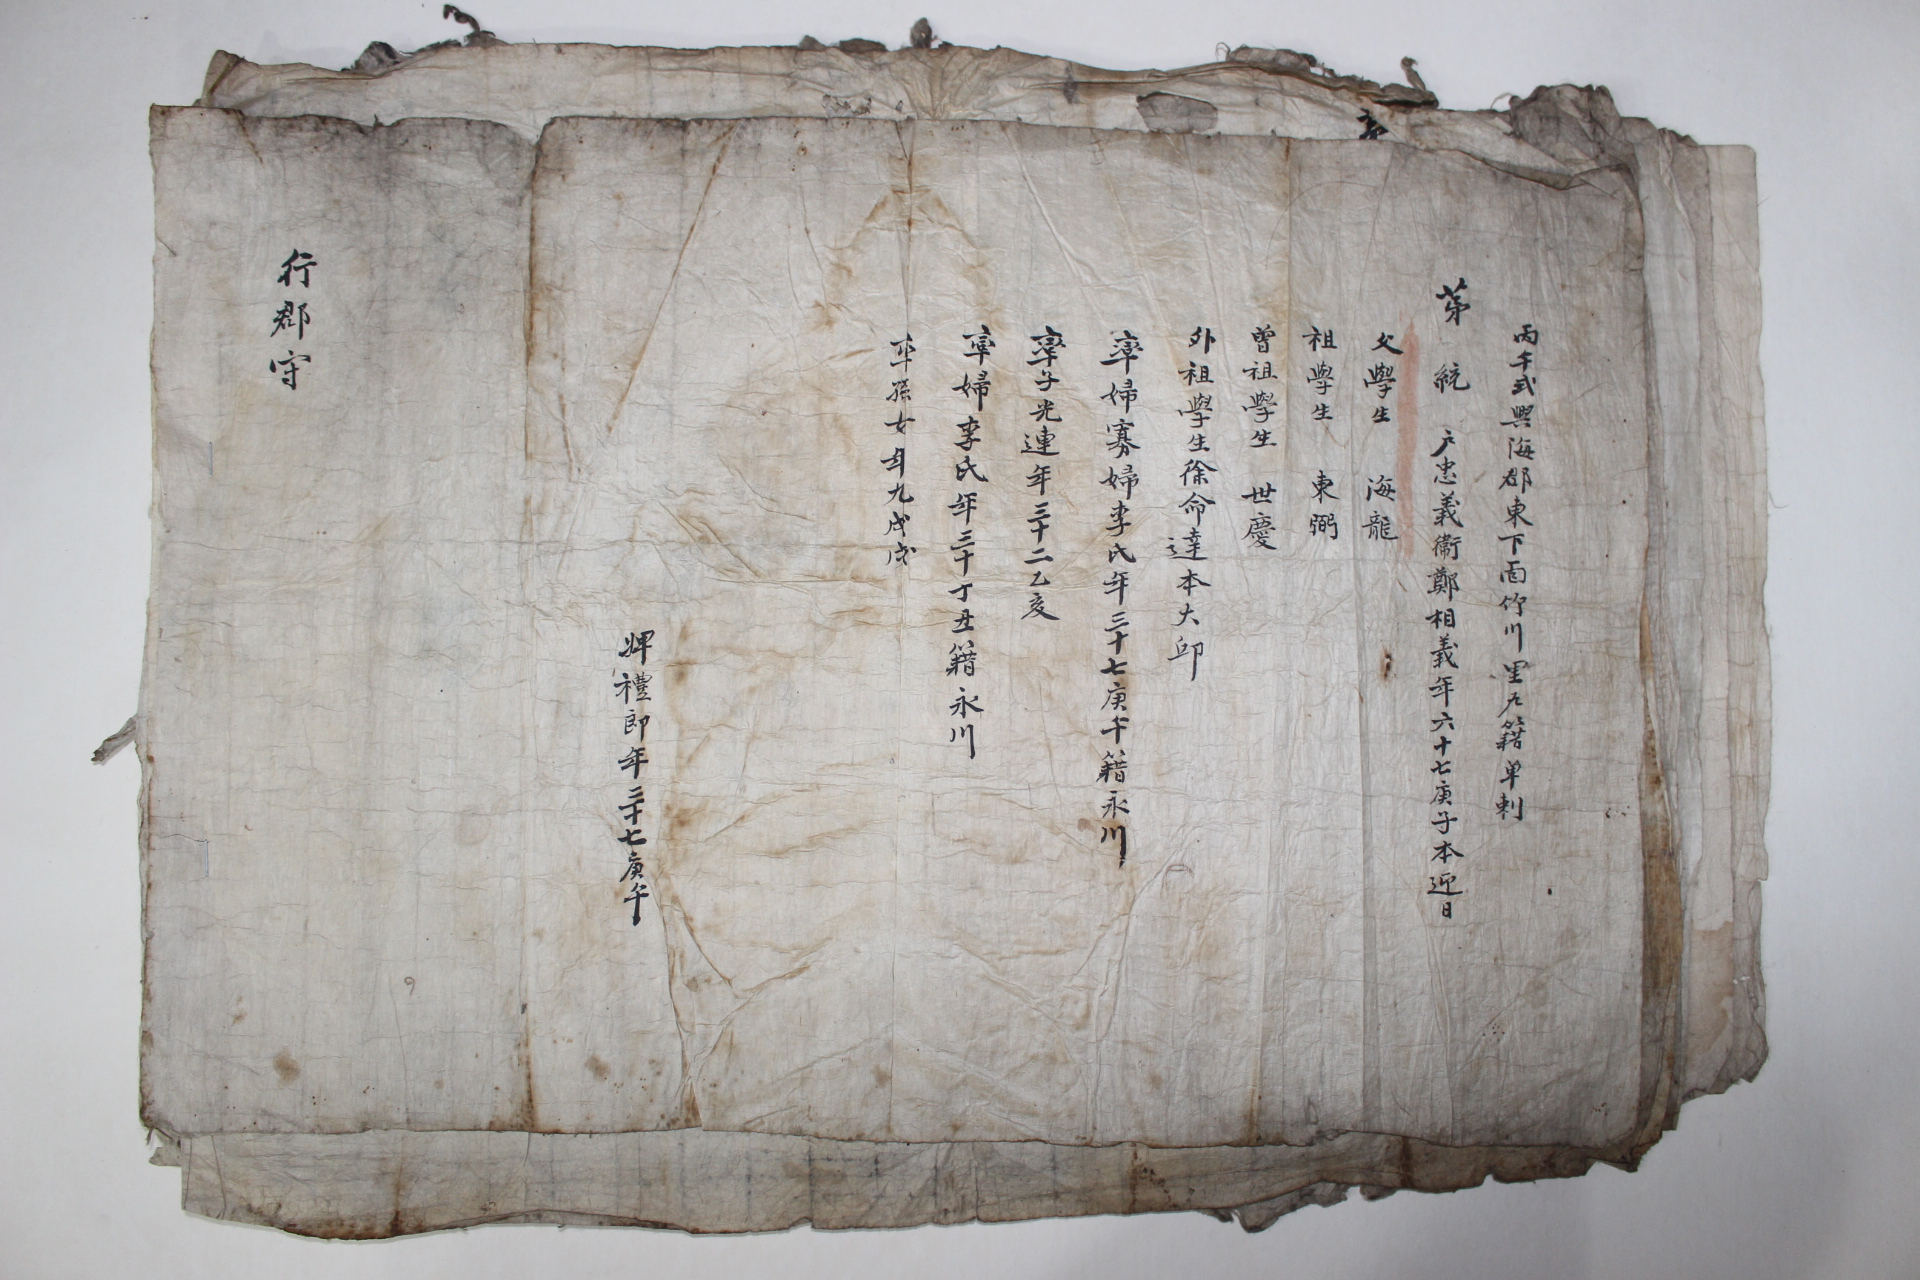 丙午式興海郡東下面竹川里戶籍單刺
第 統 戶忠義衛鄭相義年六十七庚子本迎日
父學生 海龍
祖學生 東弼
曾祖學生 世慶
外祖學生徐命達本大邱
率婦寡婦李氏年三十七庚午籍永川
率子光連年三十二乙亥
率婦李氏年三十丁丑籍永川
率孫女年九戊戌
婢禮郎年三十七庚午
行郡守